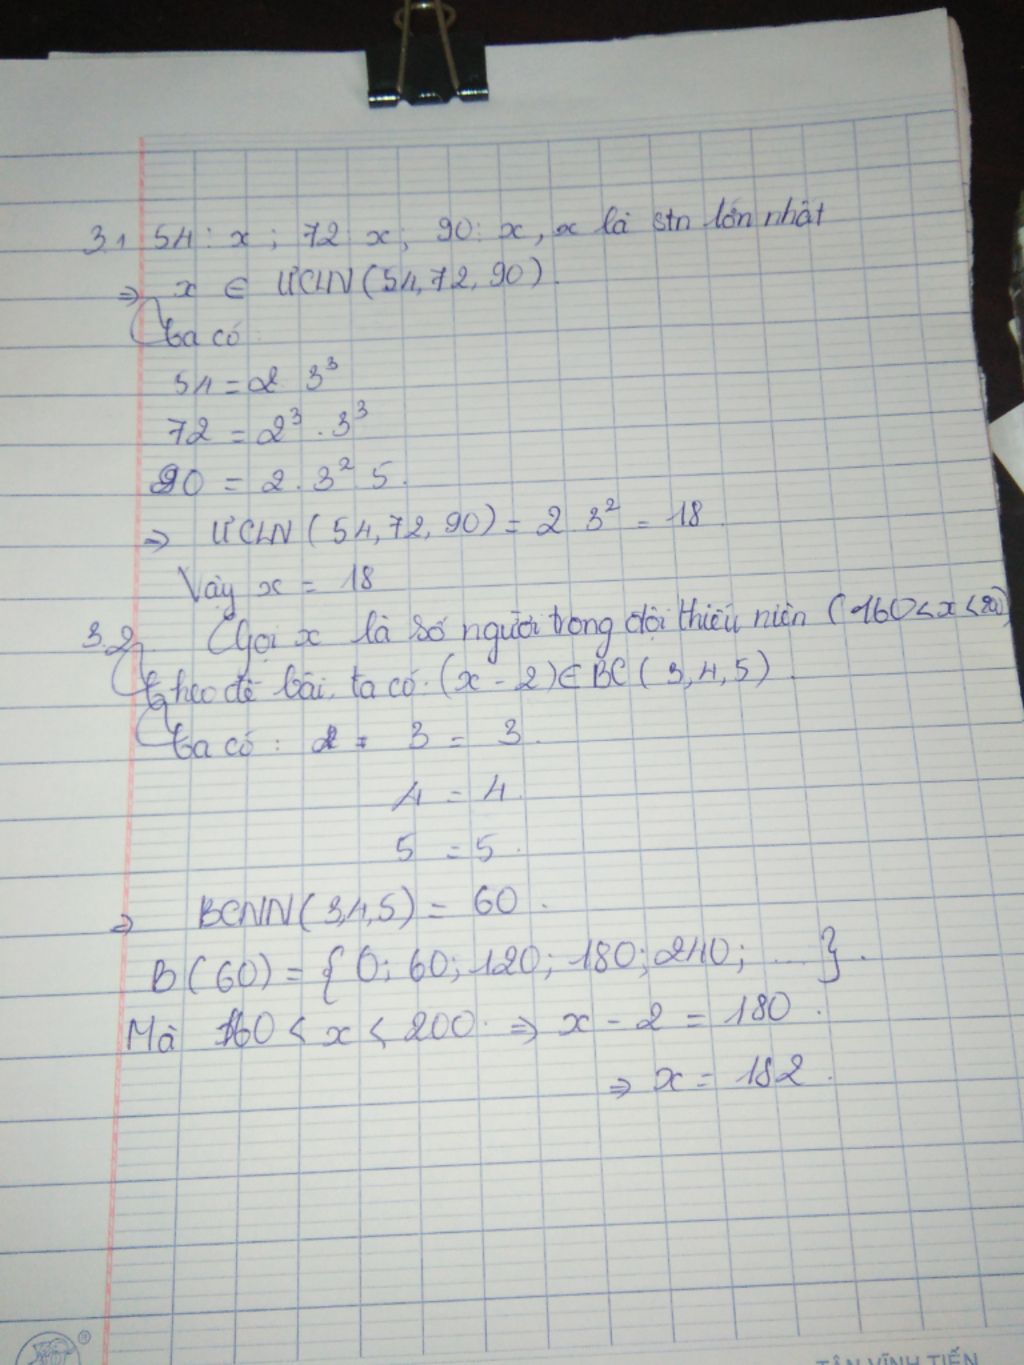 3.1 54 : x ; 72 x ; 90 : x , x là stn lớn nhất
⇒ x ∈ ƯCLN (54, 72, 90) .
ta có
54 = 2 3³
72 = 2³ . 3³
90 = 2 . 3² 5 .
⇒ ƯCLN ( 54, 72, 90) = 2 3² = 18 .
Vậy x = 18
3.2 Gọi x là số người trong đội thiếu niên ( 160 < x < 200)
theo đề bài, ta có : (x - 2) ∈ BC ( 3, 4, 5) .
ta có : 3 = 3 .
4 = 4 .
5 = 5 .
⇒ BCNN ( 3,4,5) = 60 .
B ( 60) = { 0; 60; 120; 180; 240; .... } .
Mà 160 < x < 200 . ⇒ x - 2 = 180 .
⇒ x = 182 .
®
TÂN VĨNH TIẾN